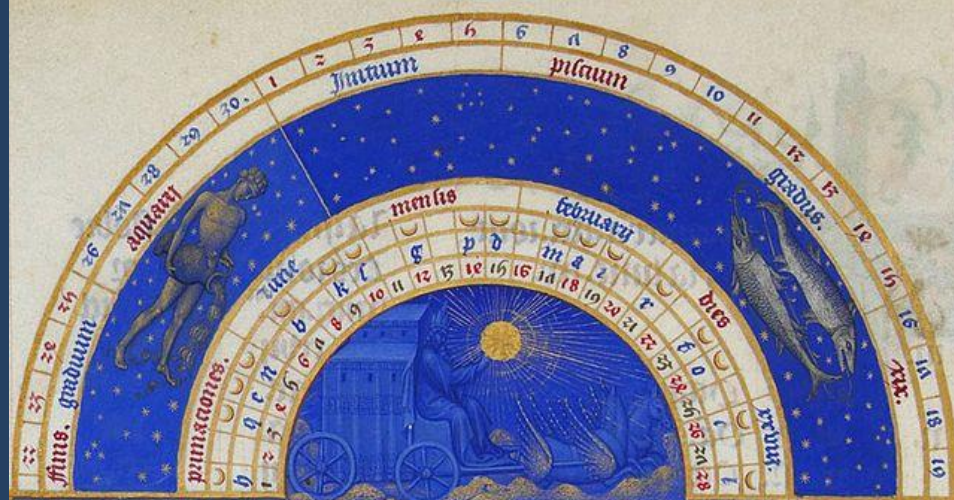 22 23 24 25 26 27 28 29 30. 1 2 3 4 5 6 7 8 9 10 11 12 13 14 15 16 17 18 19
finis. graduum aquarij Initium piscium gradus. xix.
primaciones. lune mensis february dies xxviij.
b q e n b k l g p d m a i r f o c l
1 2 3 4 5 6 7 8 9 10 11 12 13 14 15 16 17 18 19 20 21 22 23 24 25 26 27 28